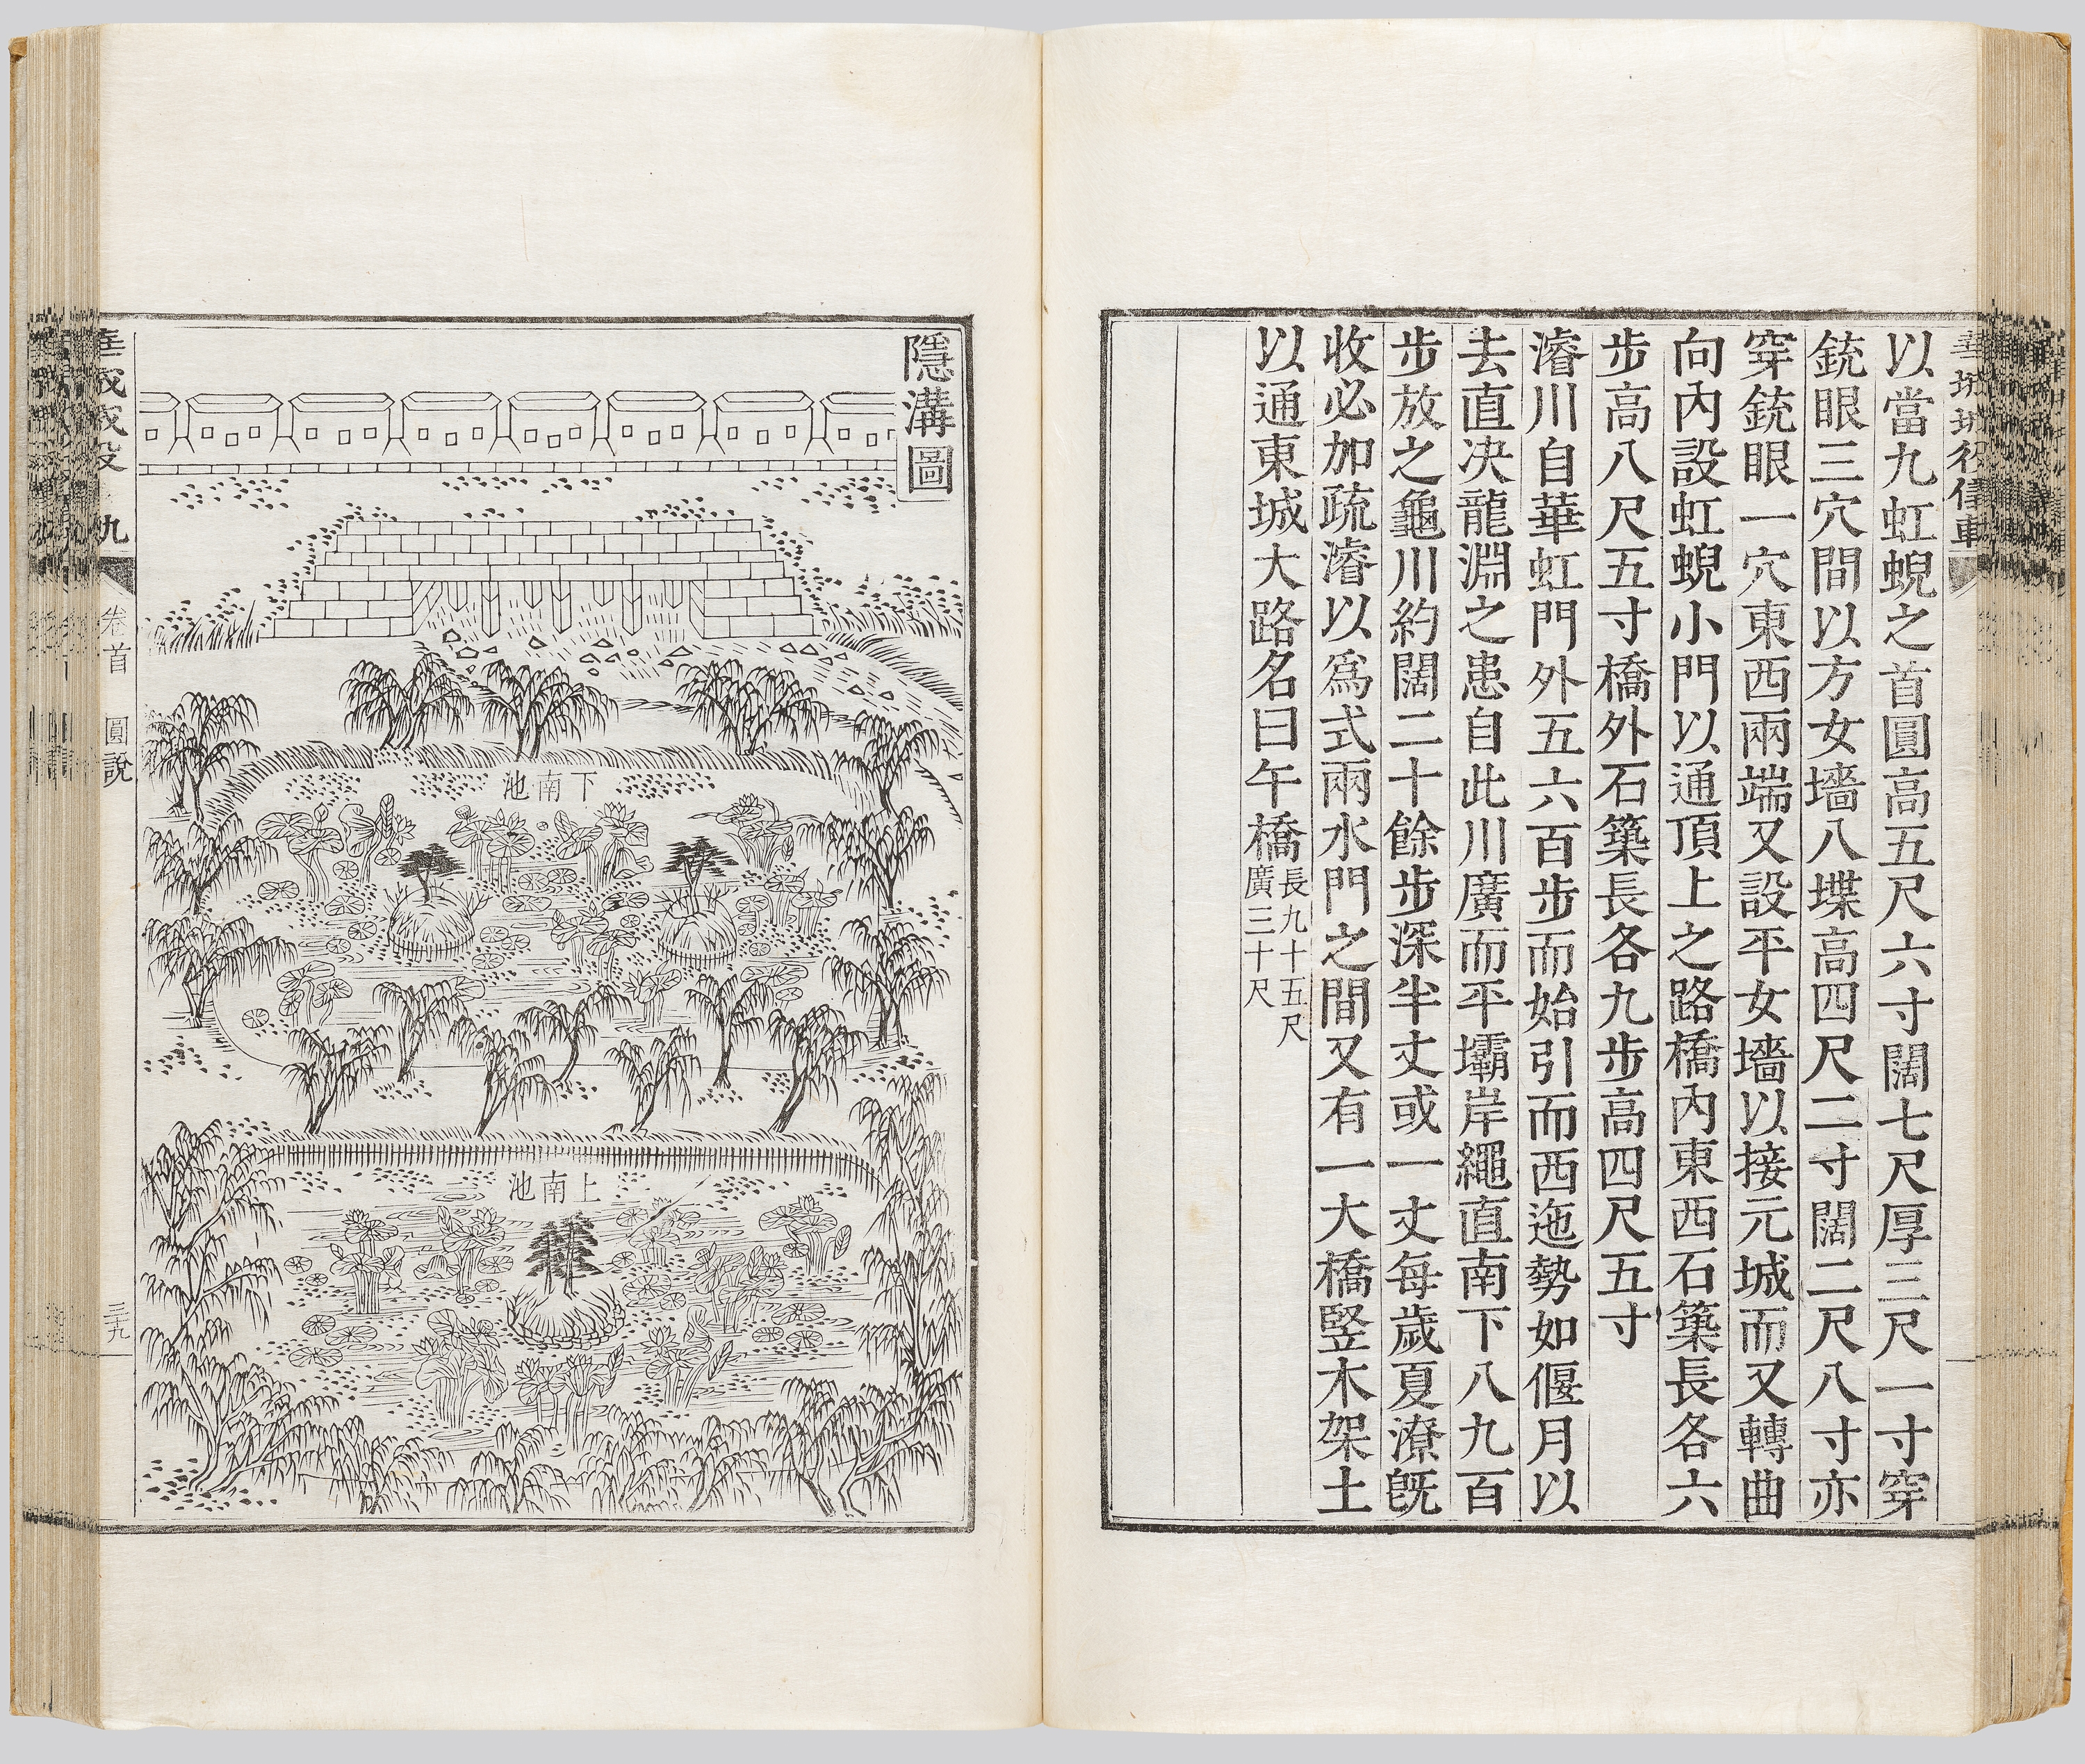 以當九虹蜺之首圓高五尺六寸闊七尺厚三尺一寸穿
銃眼三穴間以方女墻八堞高四尺二寸闊二尺八寸亦
穿銃眼一穴東西兩端又設平女墻以接元城而又轉曲
向內設虹蜺小門以通頂上之路橋內東西石築長各六
步高八尺五寸橋外石築長各九步高四尺五寸
濬川自華虹門外五六百步而始引而西迤勢如偃月以
去直決龍淵之患自此川廣而平壩岸繩直南下八九百
步放之龜川約闊二十餘步深半丈或一丈每歲夏潦旣
收必加疏濬以爲式兩水門之間又有一大橋竪木架土
以通東城大路名曰午橋長九十五尺
廣三十尺
隱溝圖
下南池
上南池
卷首
圖說
三十九